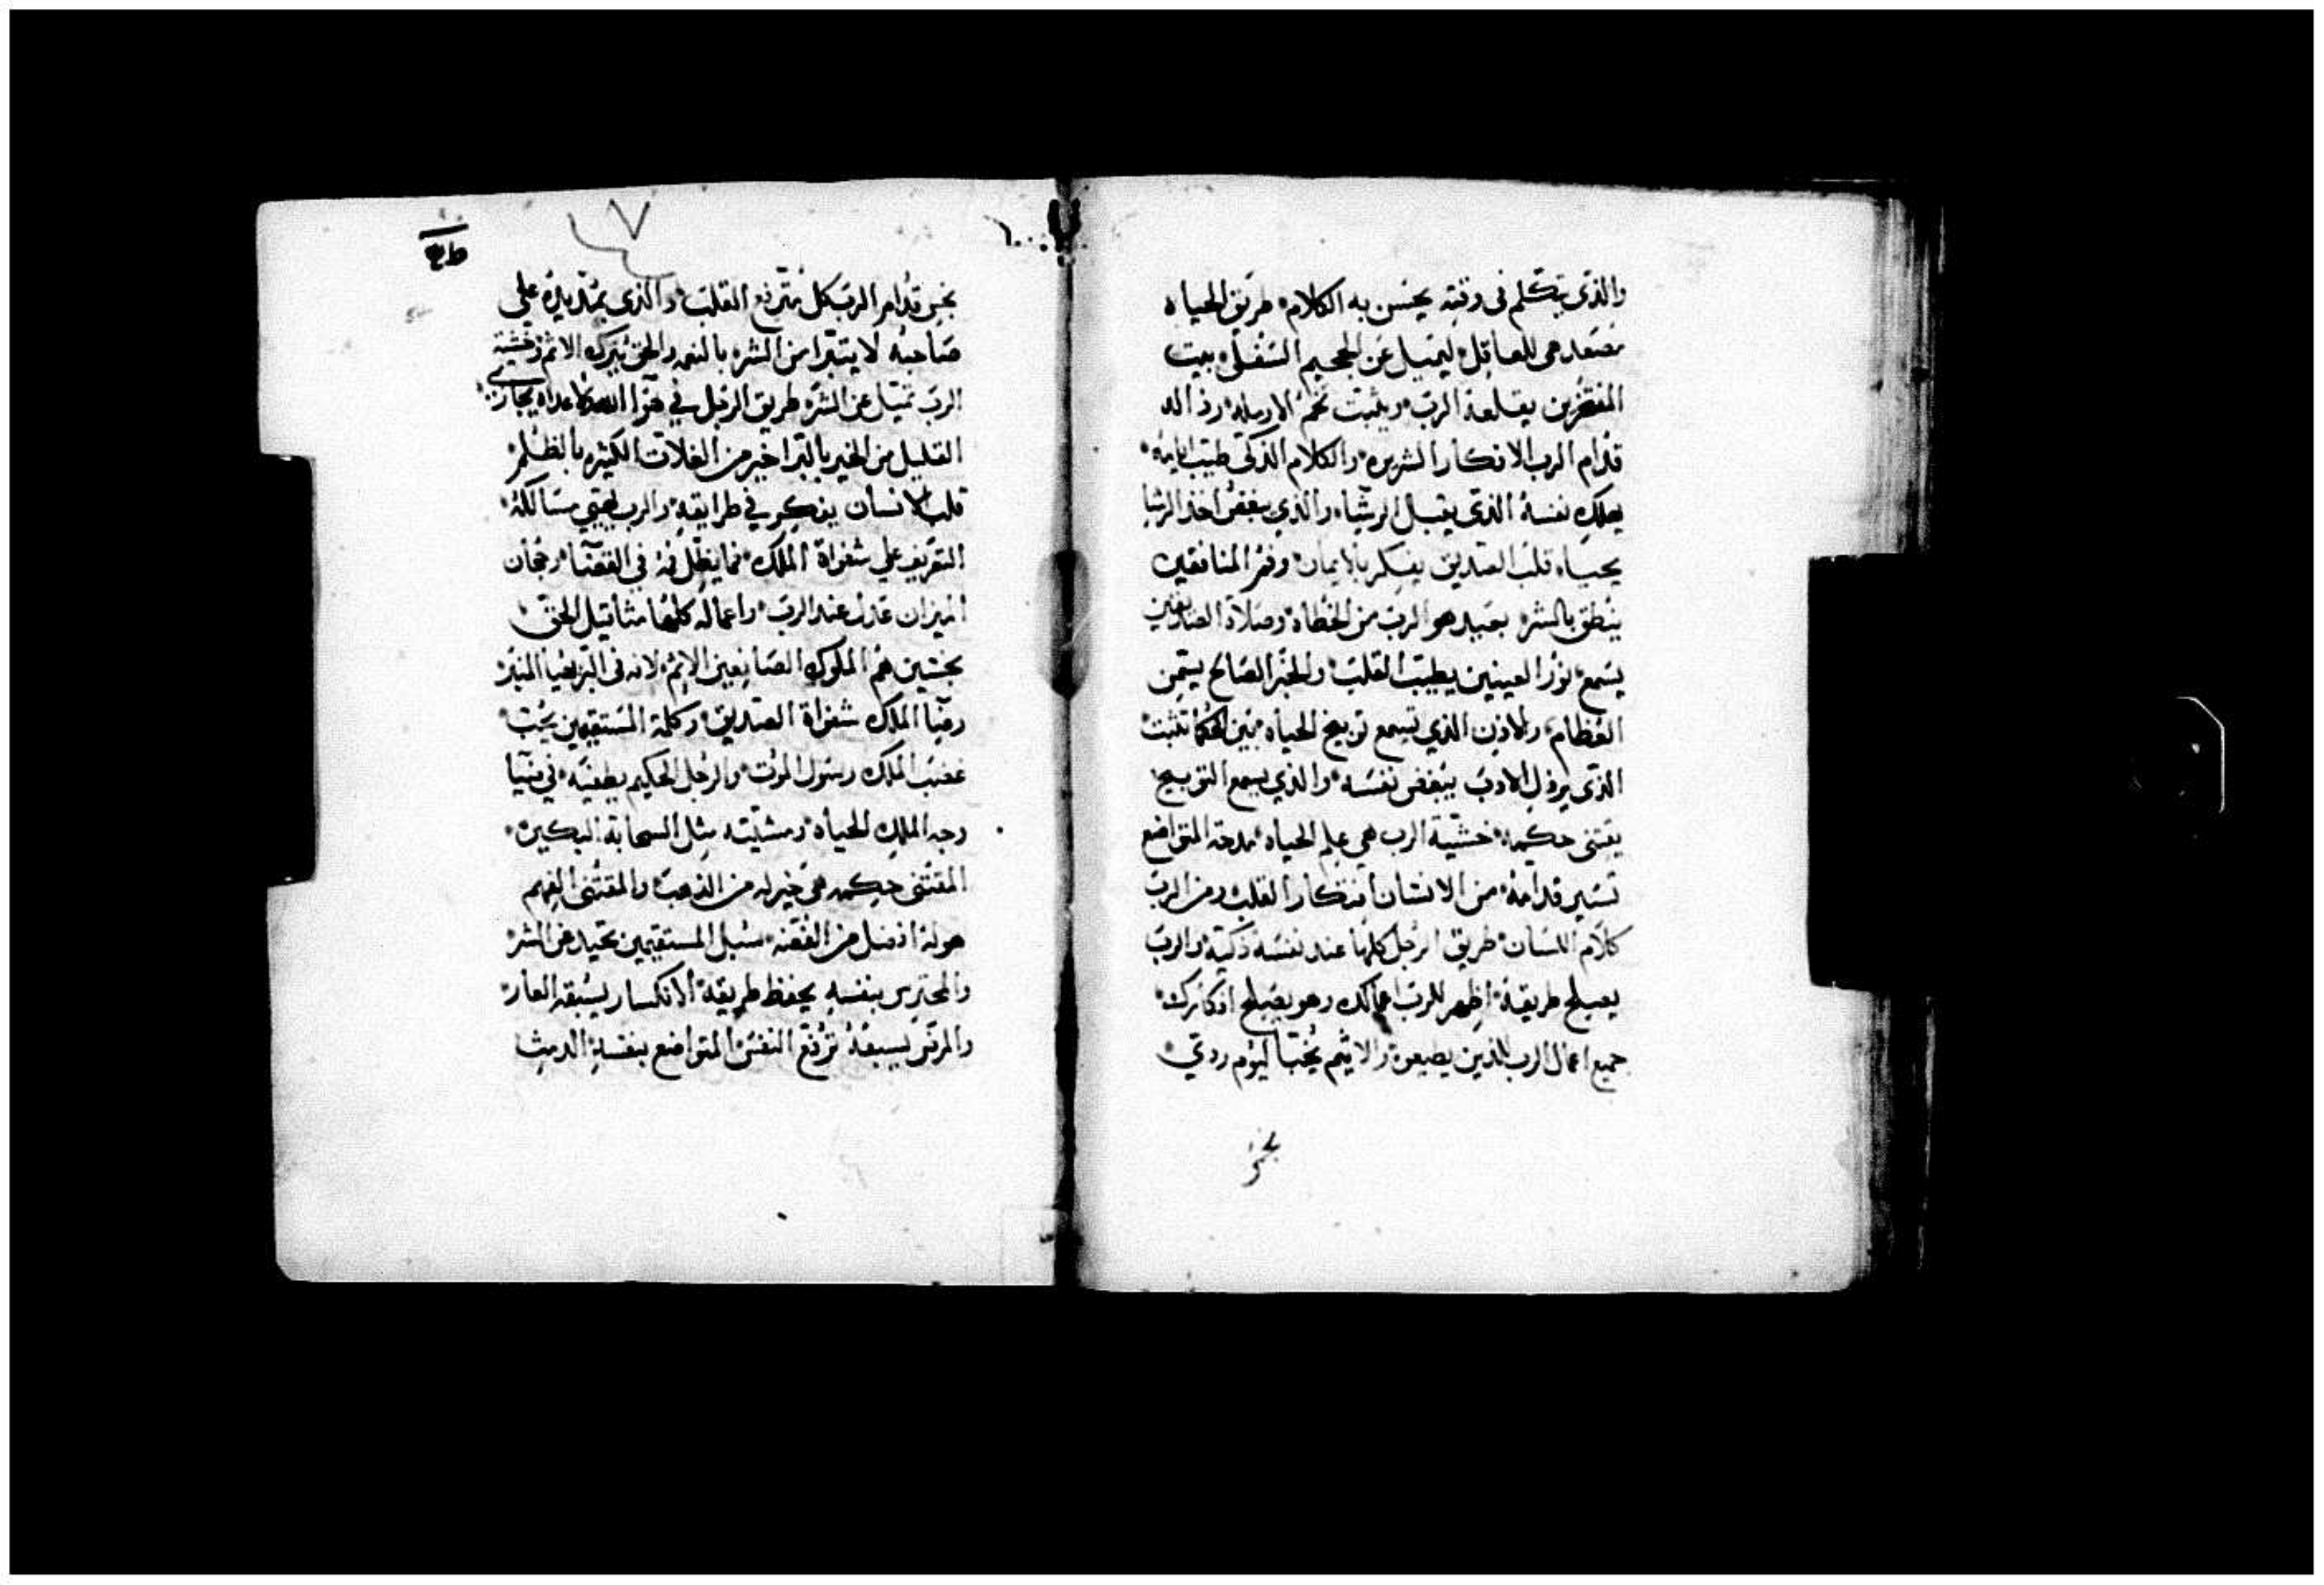 والذي يتكلم في وقته يحسن به الكلام٭ طريق الحياه
مصعد هي للعاقل٭ ليميل عن الجحيم السفلي٭ بيت
المفتخرين يقلعه الرب٭ ويثبت تخم الارمله٭ رذاله
قدام الرب الافكار الشريره٭ والكلام الذكي طيب امامه٭
يهلك نفسه الذي يقبل الرشا٭ والذي يبغض اخذ الرشا
يحيا٭ قلب الصديق يفكر بالايمان٭ وفم المنافقين
ينطق بالشر٭ بعيد هو الرب من الخطاه٭ وصلاة الصديقين
يسمع٭ نور العينين يطيب القلب٭ والخبر الصالح يسمن
العظام٭ والاذن الذي تسمع توبيخ الحياه٭ بين الحكما تثبت٭
الذي يرذل الادب يبغض نفسه٭ والذي يسمع التوبيخ
يقتني حكمه٭ خشية الرب هي علم الحياه٭ مدحة المتواضع
تسير قدامه٭ من الانسان افتكار القلب٭ ومن الرب
كلام اللسان٭ طريق الرجل كلها عند نفسه ذكية٭ والرب
يصلح طريقه٭ اظهر للرب اعمالك وهو يصلح افكارك٭
جميع اعمال الرب للذين يطيعوه٭ والاثيم يخبا ليوم ردي٭
نجس
٦٧
نجس قدام الرب كل مترفع القلب٭ والذي يمد يده علي
صاحبه لا يتبرا من الشر٭ بالنعمه والحق يترك الاثم٭ وخشية
الرب تميل عن الشر٭ طريق الرجل
القليل من الخير بالبر اخير من الغلات الكثيره بالظلم٭
قلب الانسان يفكر في طرايقه٭ والرب يهيي مسالكه٭
التعريف علي شفواة الملك٭ فما يظل فمه في القضا٭ رجحان
الميزان عدل عند الرب٭ واعماله كلها مثاقيل الحق٭
نجسين هم الملوك الصانعين الاثم٭ لانه في البر
رضا الملك شفواة الصديق٭ وكلمة المستقيمين يحب٭
غضب الملك رسول الموت٭ والرجل الحكيم يطفيه٭ في ضيا
وجه الملك الحياه٭ ومشيته مثل السحابة البكيره٭
المقتني حكمه هي خير له من الذهب٭ والمقتني الفهم
هو له افضل من الفضه٭ سبل المستقيمين تحيد عن الشر٭
والمحترس بنفسه يحفظ طريقه٭ الانكسار يسبقه العار٭
والمرتفع يسبقه ترفع النفس٭ المتواضع بنفسه